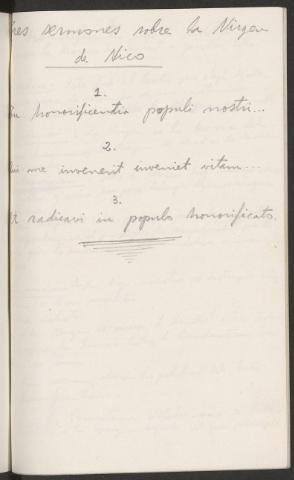 Tres sermones sobre la Virgen
de Nico
1.
Tu honorificentia populi nostri...
2.
Qui me invenerit inveniet vitam...
3.
Et radicavi in populo honorificato.